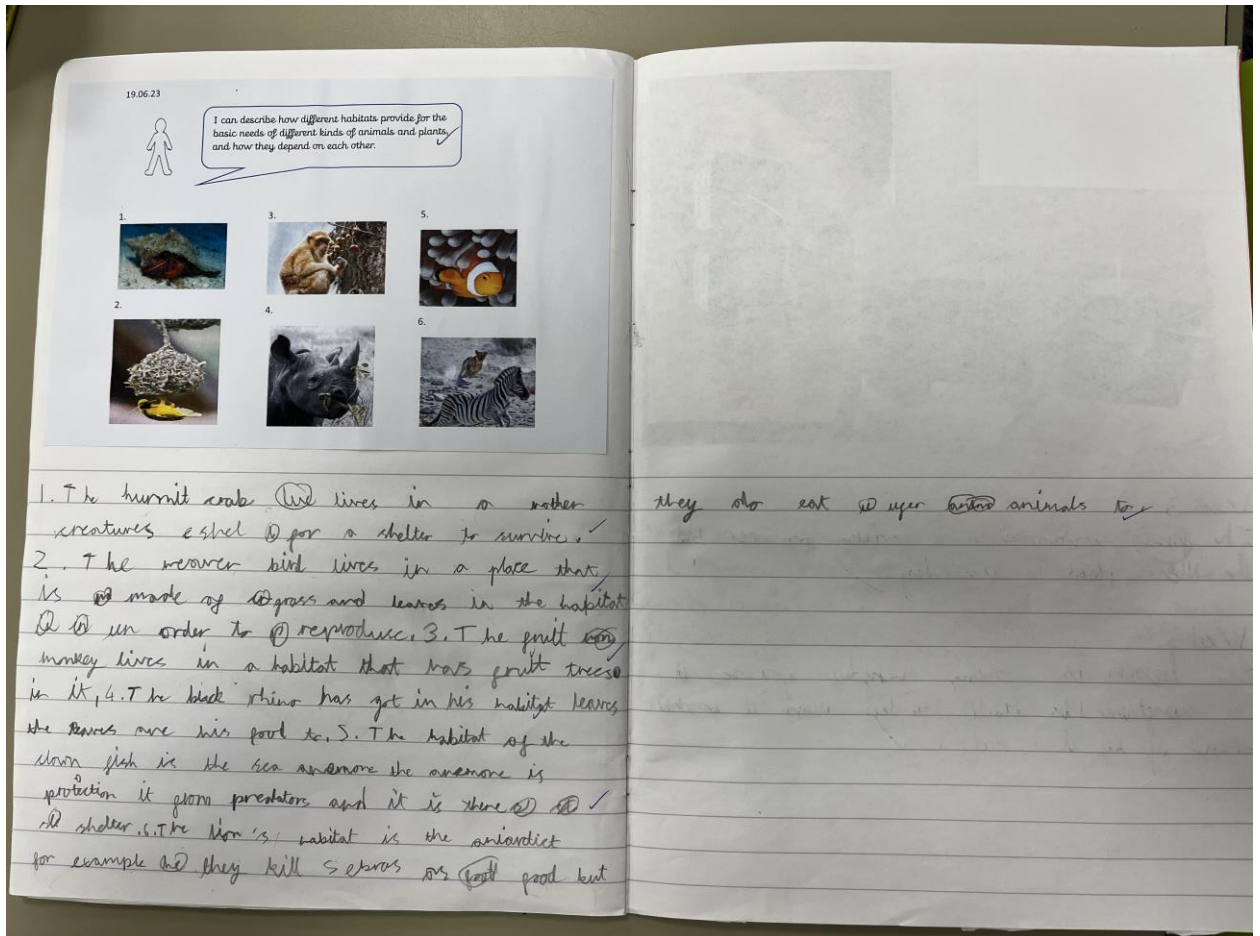 19.06.23
I can describe how different habitats provide for the
basic needs of different kinds of animals and plants,
and how they depend on each other.
1.
3.
5.
2.
4.
6.
1. The hurmit crab lives in a nother
creatures eshel for a shelter to survive.
2. The weaver bird lives in a place that
is made of grass and leaves in the habitat
in order to reproduse. 3. The fruit
monkey lives in a habitat that has fruit trees
in it, 4. The black rhino has got in his habitat leaves
the leaves are his food to. 5. The habitat of the
clown fish is the sea anemone the anemone is
protection it from predators and it is there
shelter. 6. The lion's habitat is the
for example they kill sebras as food but
they do eat animals to